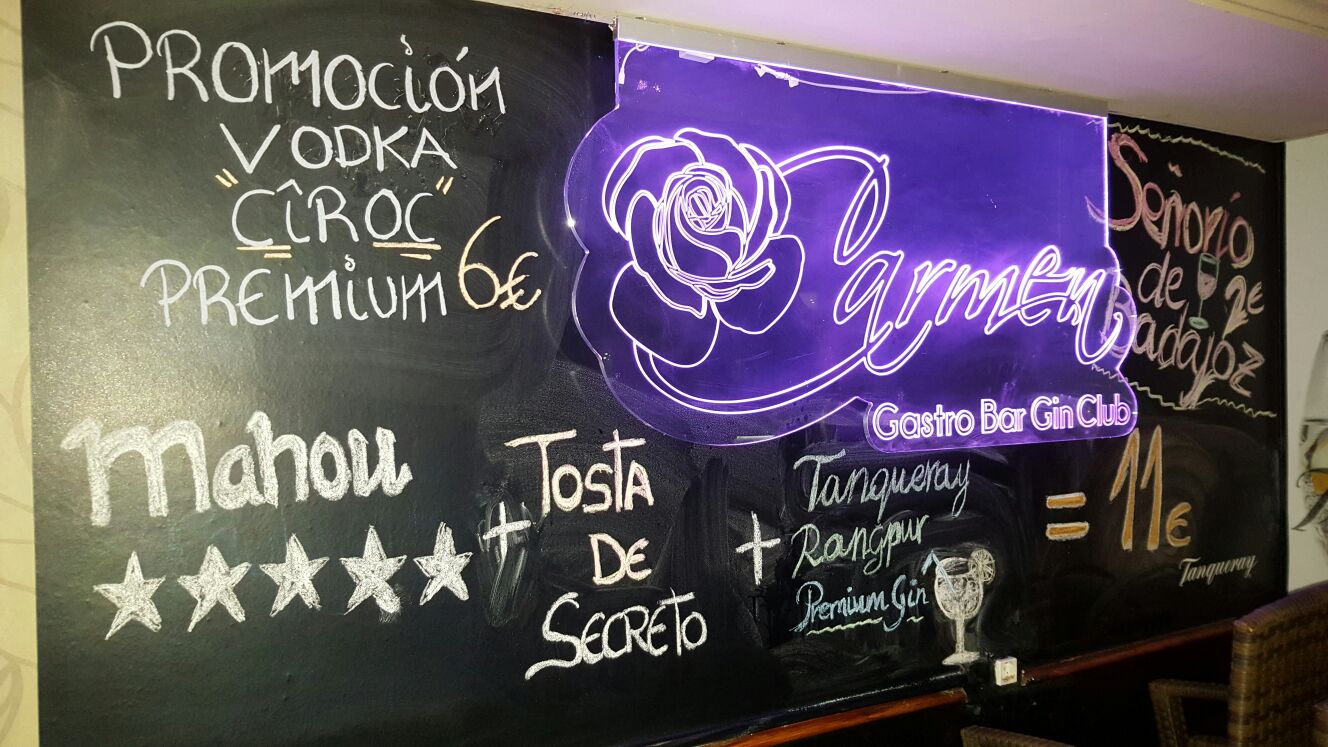 PROMOCIÓN
VODKA
"CÎROC"
PREMIUM 6€
Carmen
Gastro Bar Gin Club
Señorío
de 2€
Badajoz
Mahou
+
TOSTA
DE
SECRETO
+
Tanqueray
Rangpur
Premium Gin
= 11€
Tanqueray